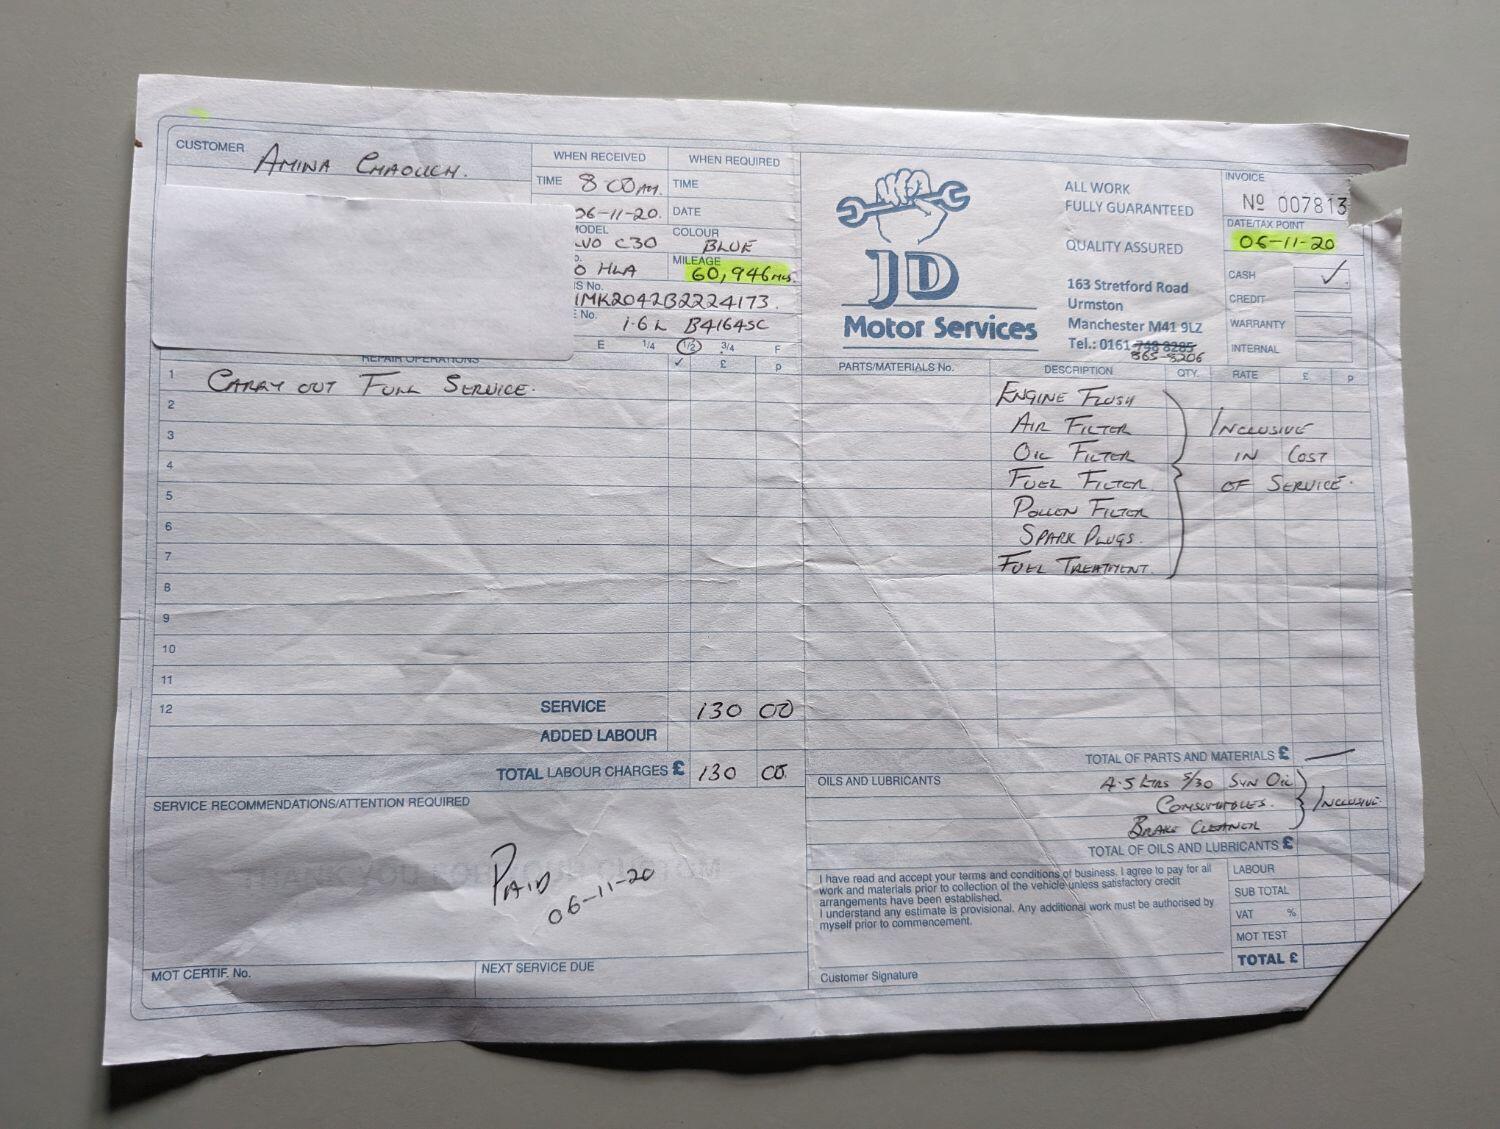 CUSTOMER AMINA CHAOUCH.
WHEN RECEIVED WHEN REQUIRED
TIME 8:00 AM. TIME
06-11-20. DATE
MODEL COLOUR
LVO C30 BLUE
MILEAGE
O HLA 60,946 MLS.
IS No.
1MK2042B2224173.
E No.
1.6L B4164SC
E 1/4 1/2 3/4 F
JD
Motor Services
ALL WORK
FULLY GUARANTEED
QUALITY ASSURED
163 Stretford Road
Urmston
Manchester M41 9LZ
Tel.: 0161 748 8285
865-8206
INVOICE
Nº 007813
DATE/TAX POINT
06-11-20
CASH ✓
CREDIT
WARRANTY
INTERNAL
REPAIR OPERATIONS ✓ £ p
1 CARRY OUT FULL SERVICE.
2
3
4
5
6
7
8
9
10
11
12 SERVICE 130 00
ADDED LABOUR
TOTAL LABOUR CHARGES £ 130 00.
PARTS/MATERIALS No. DESCRIPTION QTY. RATE £ p
ENGINE FLUSH
AIR FILTER INCLUSIVE
OIL FILTER IN COST
FUEL FILTER OF SERVICE.
POLLEN FILTER
SPARK PLUGS.
FUEL TREATMENT.
TOTAL OF PARTS AND MATERIALS £ —
OILS AND LUBRICANTS 4.5 LTRS 5/30 SYN OIL
CONSUMABLES. INCLUSIVE.
BRAKE CLEANER
TOTAL OF OILS AND LUBRICANTS £
SERVICE RECOMMENDATIONS/ATTENTION REQUIRED
PAID
06-11-20
MOT CERTIF. No. NEXT SERVICE DUE
I have read and accept your terms and conditions of business. I agree to pay for all
work and materials prior to collection of the vehicle unless satisfactory credit
arrangements have been established.
I understand any estimate is provisional. Any additional work must be authorised by
myself prior to commencement.
Customer Signature
LABOUR
SUB TOTAL
VAT %
MOT TEST
TOTAL £